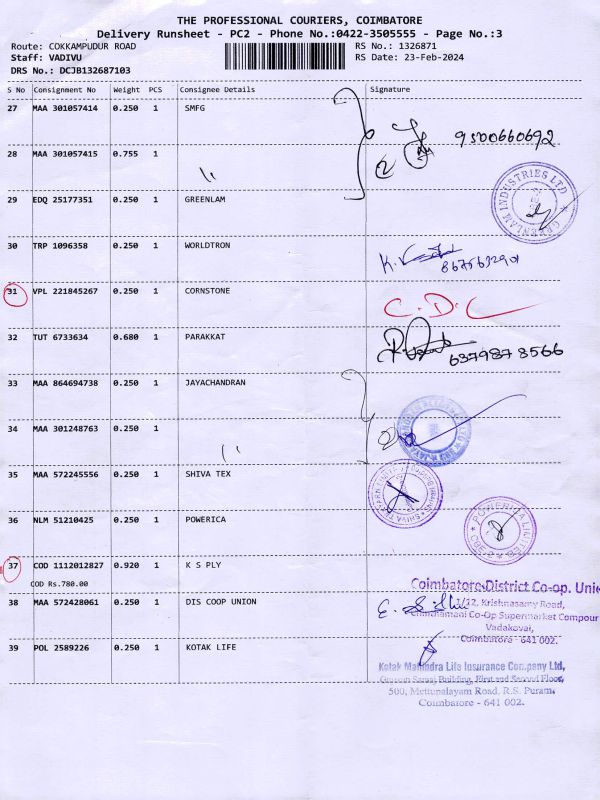 THE PROFESSIONAL COURIERS, COIMBATORE
Delivery Runsheet - PC2 - Phone No.:0422-3505555 - Page No.:3
Route: COKKAMPUDUR ROAD RS No.: 1326871
Staff: VADIVU RS Date: 23-Feb-2024
DRS No.: DCJB132687103
S No Consignment No Weight PCS Consignee Details Signature
27 MAA 301057414 0.250 1 SMFG
9500660692
28 MAA 301057415 0.755 1
29 EDQ 25177351 0.250 1 GREENLAM
GREENLAM INDUSTRIES LTD
30 TRP 1096358 0.250 1 WORLDTRON
31 VPL 221845267 0.250 1 CORNSTONE
C.D.C
32 TUT 6733634 0.680 1 PARAKKAT
6379878566
33 MAA 864694738 0.250 1 JAYACHANDRAN
34 MAA 301248763 0.250 1
35 MAA 572245556 0.250 1 SHIVA TEX
36 NLM 51210425 0.250 1 POWERICA
POWERICA LIMITED
CBE
37 COD 1112012827 0.920 1 K S PLY
COD Rs.780.00
Coimbatore District Co-op. Unio
38 MAA 572428061 0.250 1 DIS COOP UNION
/12, Krishnasamy Road,
Chinthamani Co-Op Supermarket Compour
Vadakovai,
Coimbatore - 641 002.
39 POL 2589226 0.250 1 KOTAK LIFE
Kotak Mahindra Life Insurance Company Ltd,
Building, First and Second Floor,
500, Mettupalayam Road, R.S. Puram,
Coimbatore - 641 002.